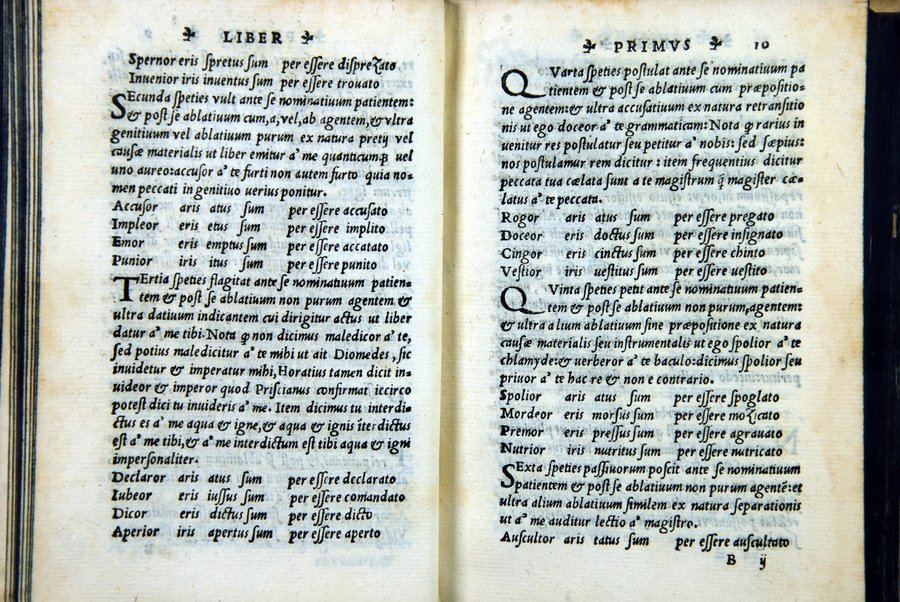 LIBER
Spernor eris spretus sum per essere disprezato
Inuenior iris inuentus sum per essere trouato
SEcunda speties vult ante se nominatiuum patientem:
& post se ablatiuum cum, a, vel, ab agentem, & vltra
genitiuum vel ablatiuum purum ex natura pretij vel
causæ materialis ut liber emitur a' me quanticumq; uel
uno aureo: accusor a' te furti non autem furto quia no-
men peccati in genitiuo uerius ponitur.
Accusor aris atus sum per essere accusato
Impleor eris etus sum per essere implito
Emor eris emptus sum per essere accatato
Punior iris itus sum per essere punito
TErtia speties flagitat ante se nominatiuum patien-
tem & post se ablatiuum non purum agentem &
ultra datiuum indicantem cui dirigitur actus ut liber
datur a' me tibi. Nota q̃ non dicimus maledicor a' te,
sed potius maledicitur a' te mihi ut ait Diomedes, sic
inuidetur & imperatur mihi, Horatius tamen dicit in-
uideor & imperor quod Priscianus confirmat iccirco
potest dici tu inuideris a' me. Item dicimus tu interdi-
ctus es a' me aqua & igne, & aqua & ignis īterdictus
est a' me tibi, & a' me interdictum est tibi aqua & igni
impersonaliter.
Declaror aris atus sum per essere declarato
Iubeor eris iussus sum per essere comandato
Dicor eris dictus sum per essere dicto
Aperior iris apertus sum per essere aperto
PRIMVS 10
QVarta speties postulat ante se nominatiuum pa
tientem & post se ablatiuum cum præpositio-
ne agentem: & ultra accusatiuum ex natura retransitio
nis ut ego doceor a' te grammaticam: Nota q̃ rarius in
uenitur res postulatur seu petitur a' nobis: sed sæpius:
nos postulamur rem dicitur: item frequentius dicitur
peccata tua cælata sunt a te magistrum q̃ magister cæ-
latus a' te peccata.
Rogor aris atus sum per essere pregato
Doceor eris doctus sum per essere insignato
Cingor eris cinctus sum per essere chinto
Vestior iris uestitus sum per essere uestito
QVinta speties petit ante se nominatiuum patien-
tem & post se ablatiuum non purum, agentem:
& ultra alium ablatiuum sine præpositione ex natura
causæ materialis seu instrumentalis ut ego spolior a' te
chlamyde: & uerberor a' te baculo: dicimus spolior seu
priuor a' te hac re & non e contrario.
Spolior aris atus sum per essere spogliato
Mordeor eris morsus sum per essere mozicato
Premor eris pressus sum per essere agrauato
Nutrior iris nutritus sum per essere nutricato
SExta speties passiuorum poscit ante se nominatiuum
patientem & post se ablatiuum non purum agentē: et
ultra alium ablatiuum similem ex natura separationis
ut a' me auditur lectio a' magistro.
Auscultor aris tatus sum per essere auscultato
B ij